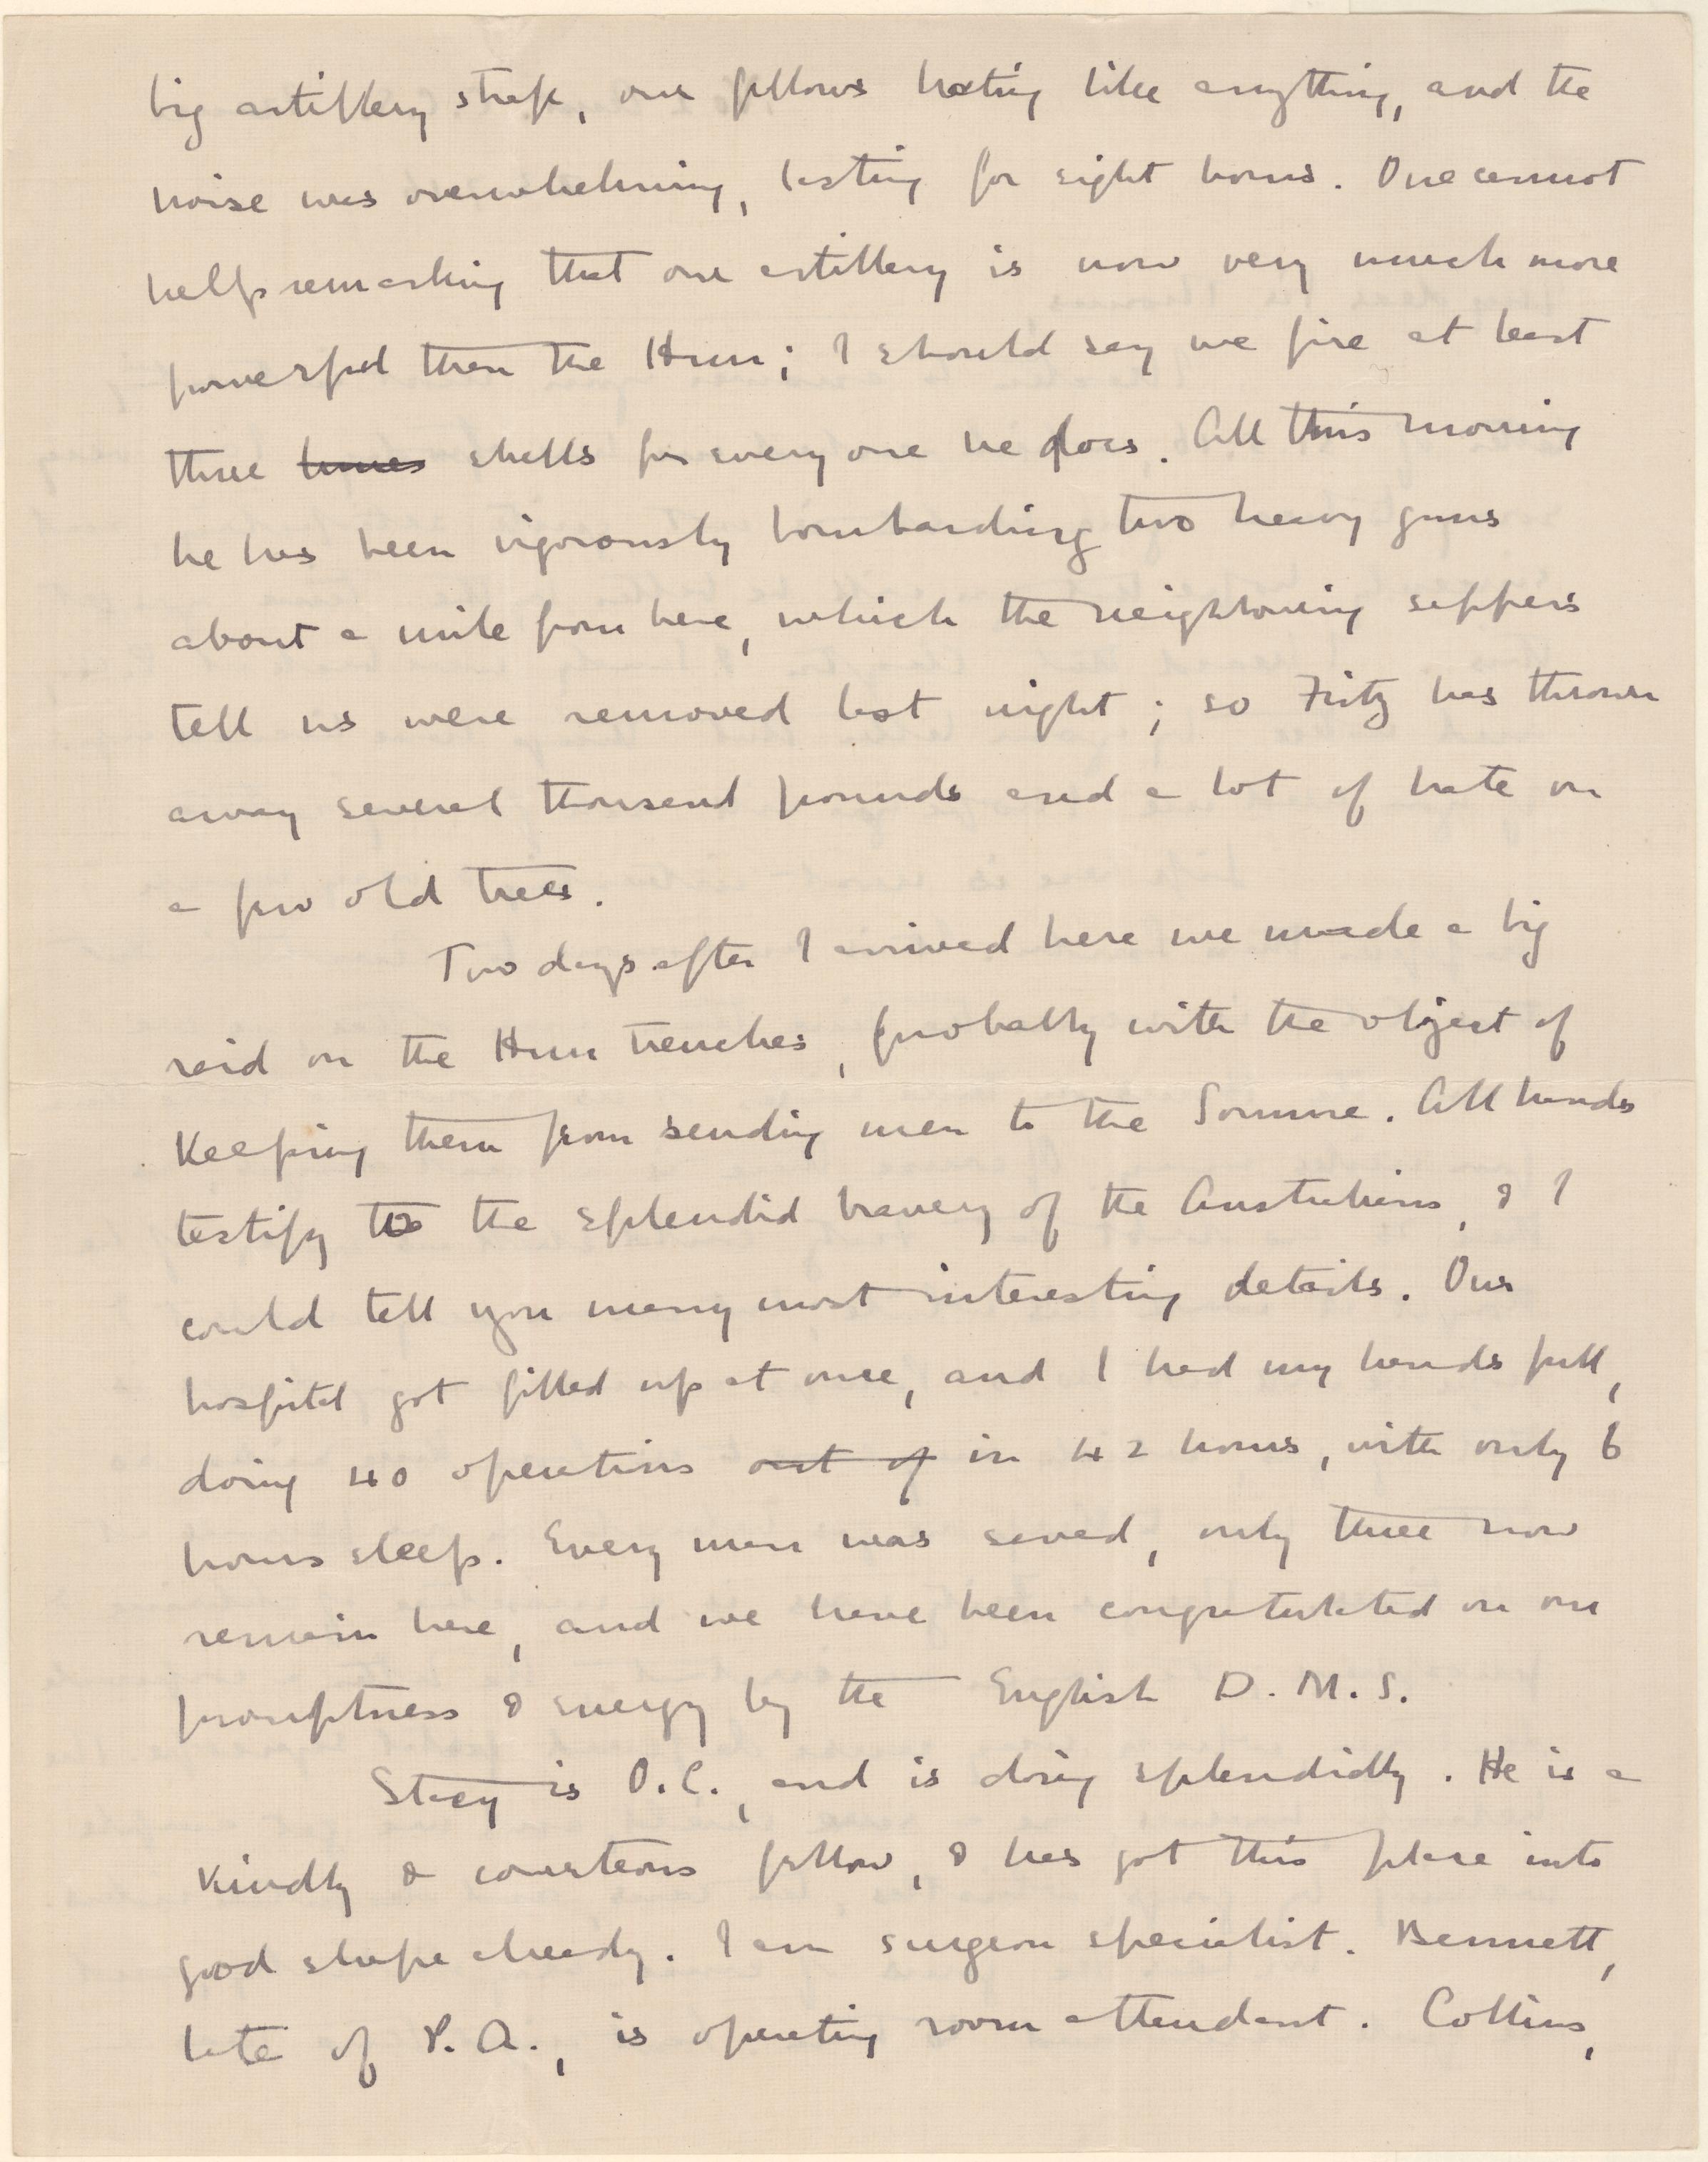 big artillery strafe, our fellows hating like anything, and the
noise was overwhelming, lasting for eight hours. One cannot
help remarking that our artillery is now very much more
powerful than the Hun; I should say we fire at least
three times shells for every one he does. All this morning
he has been vigorously bombarding two heavy guns
about a mile from here, which the neighbouring sappers
tell us were removed last night; so Fritz has thrown
away several thousand pounds and a lot of hate on
a few old trees.
Two days after I arrived here we made a big
raid on the Hun trenches, probably with the object of
keeping them from sending men to the Somme. All hands
testify to the splendid bravery of the Australians, & I
could tell you many most interesting details. Our
hospital got filled up at once, and I had my hands full,
doing 40 operations out of in 42 hours, with only 6
hours sleep. Every man was saved, only three now
remain here, and we have been congratulated on our
promptness & energy by the English D.M.S.
Stacy is O.C., and is doing splendidly. He is a
kindly & courteous fellow, & has got this place into
good shape already. I am surgeon specialist. Bennett,
late of P.A., is operating room attendant. Collins,